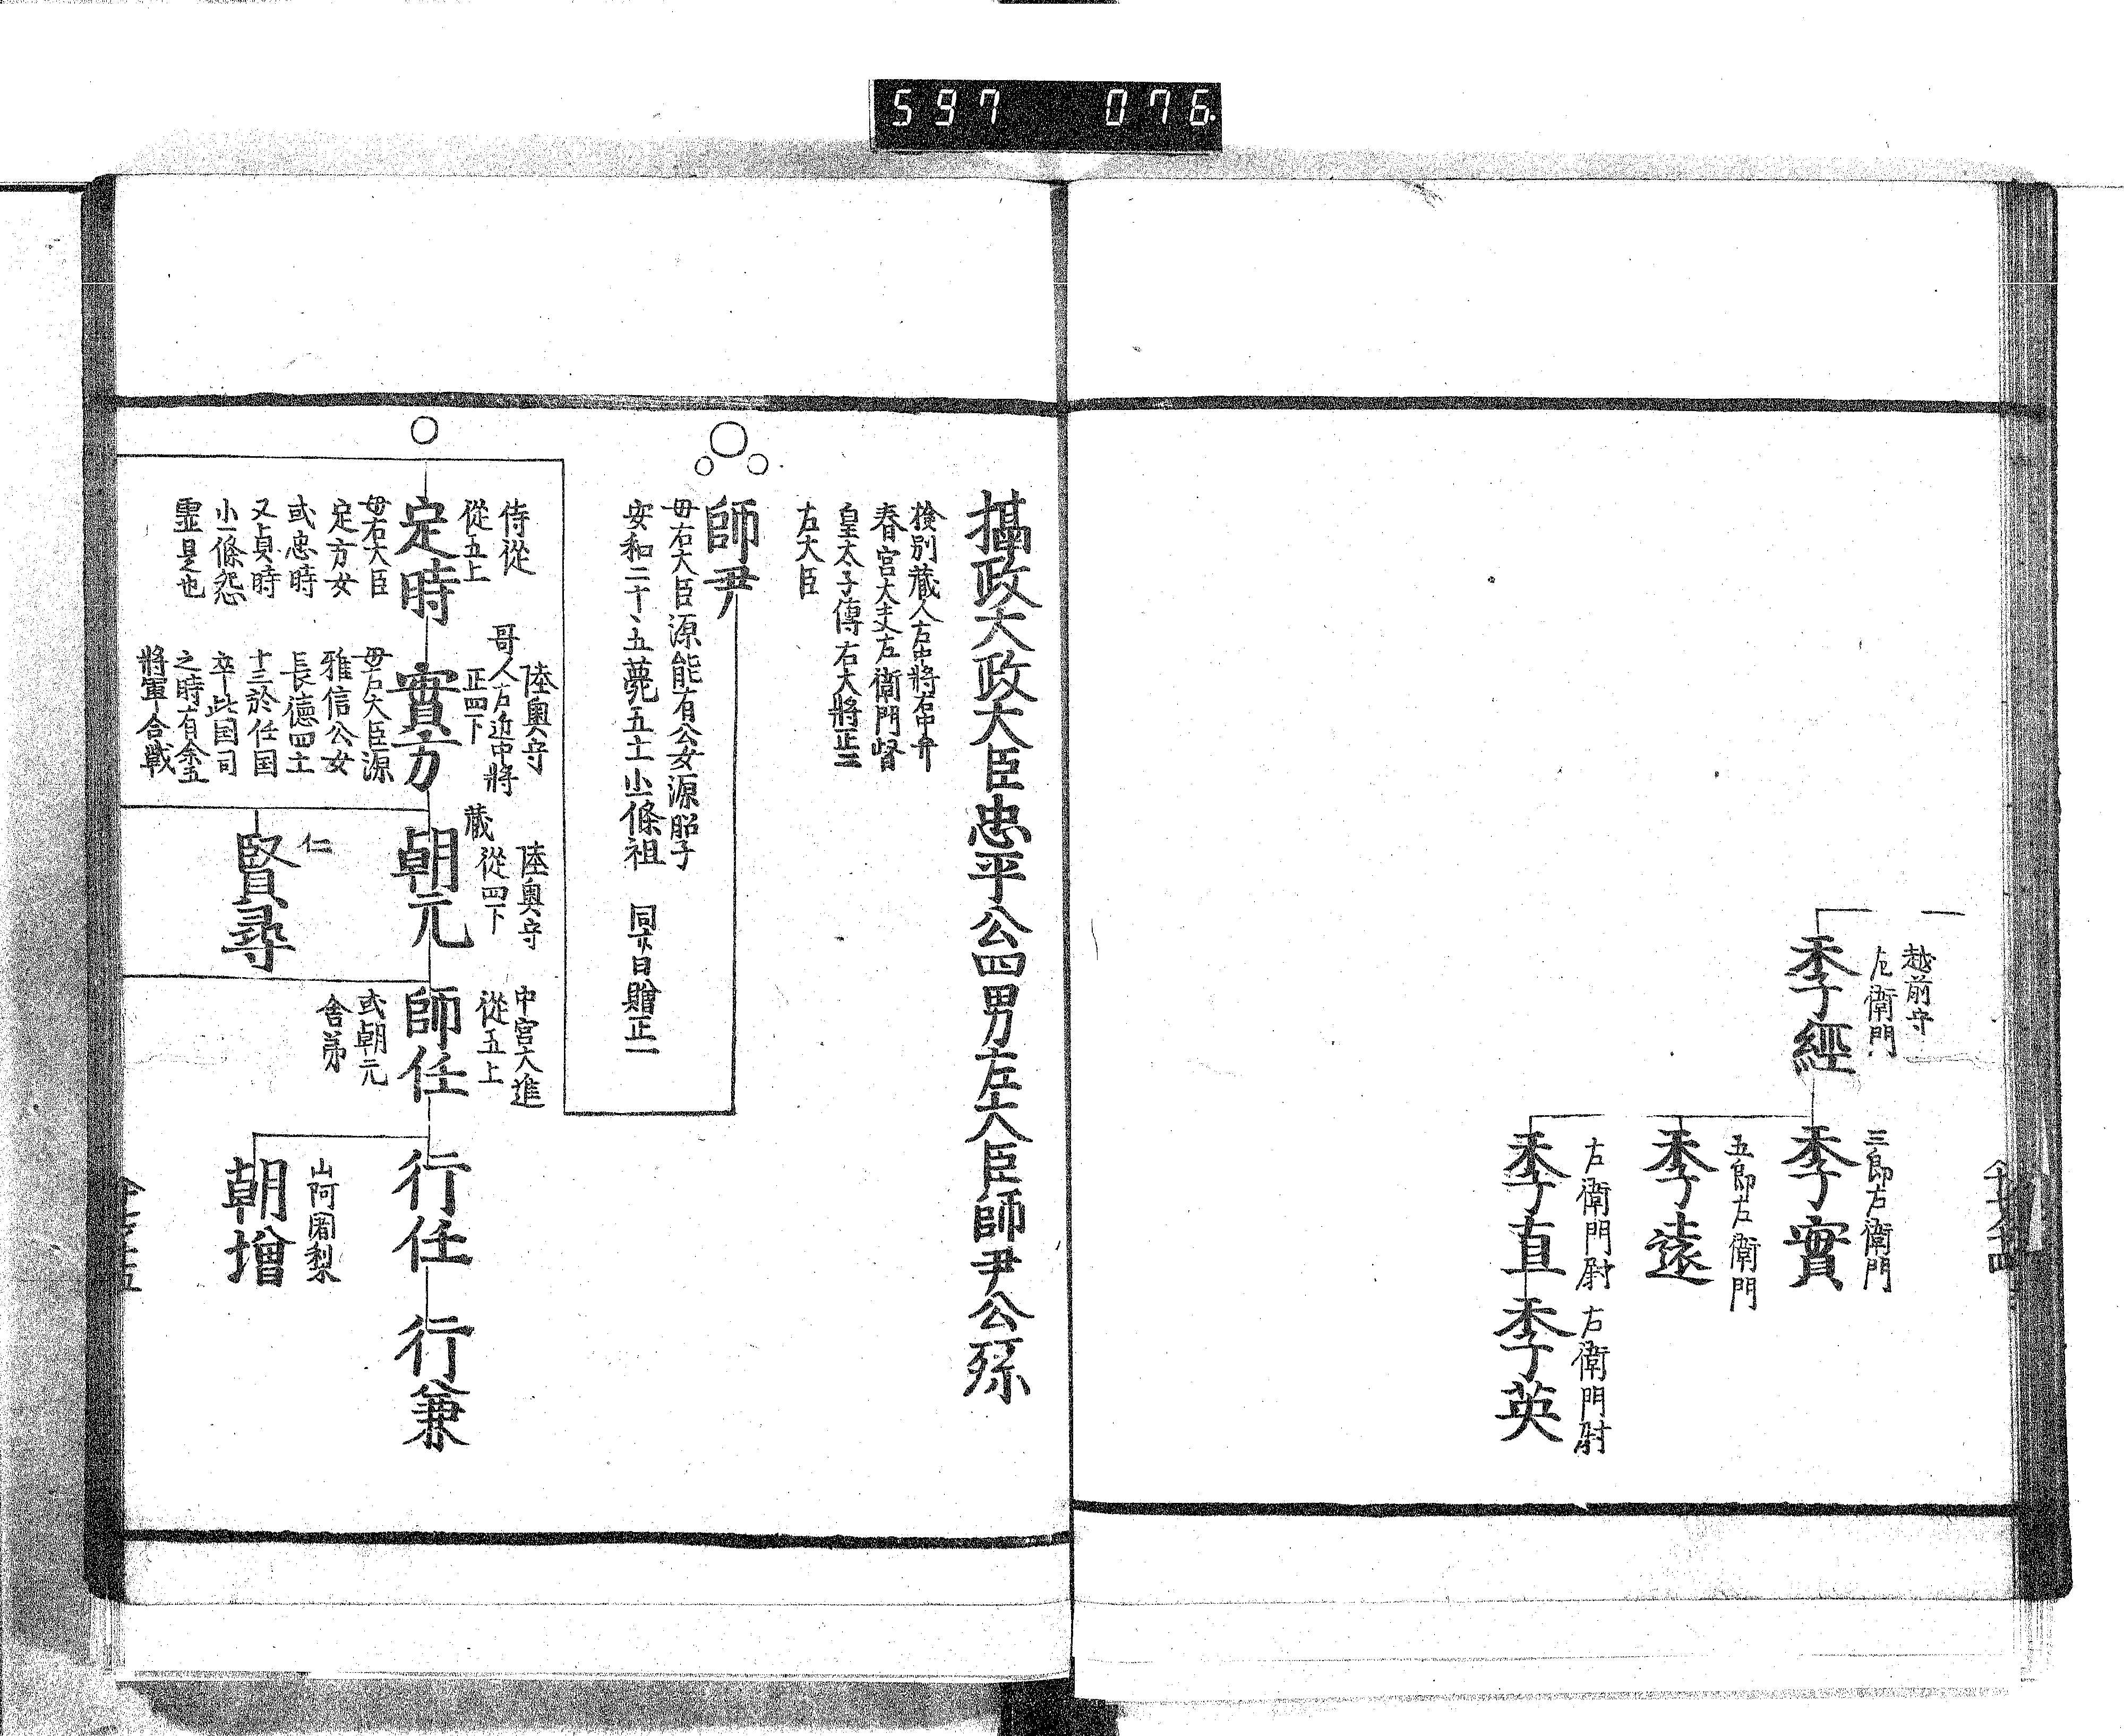 597 076
越前守
左衛門
季經
三郎左衛門
季實
五郎左衛門
季遠
左衛門尉
季直
左衛門尉
季英
攝政太政大臣忠平公四男左大臣師尹公孫
檢別藏人右中將右中弁
春宮大夫左衛門督
皇太子傳右大將正二
左大臣
師尹
母右大臣源能有公女源昭子
安和二十、五薨五十小一條祖 同日贈正一
侍從
從五上
定時
母右大臣
定方女
或忠時
又貞時
小一條怨
霊是也
陸奧守
哥人右近中將
正四下
實方
母左大臣源
雅信公女
長德四十一
十三於任国
卒此国司
之時有余五
將軍合戰
陸奧守
藏從四下
朝元
仁
賢尋
中宮大進
從五上
師任
或朝元
舍弟
行任
山阿闍梨
朝增
行兼